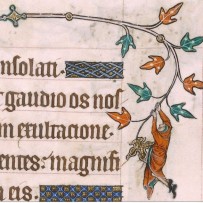 nsolati.
gaudio os nos
m exultacione.
entes: magnifi
m eis.